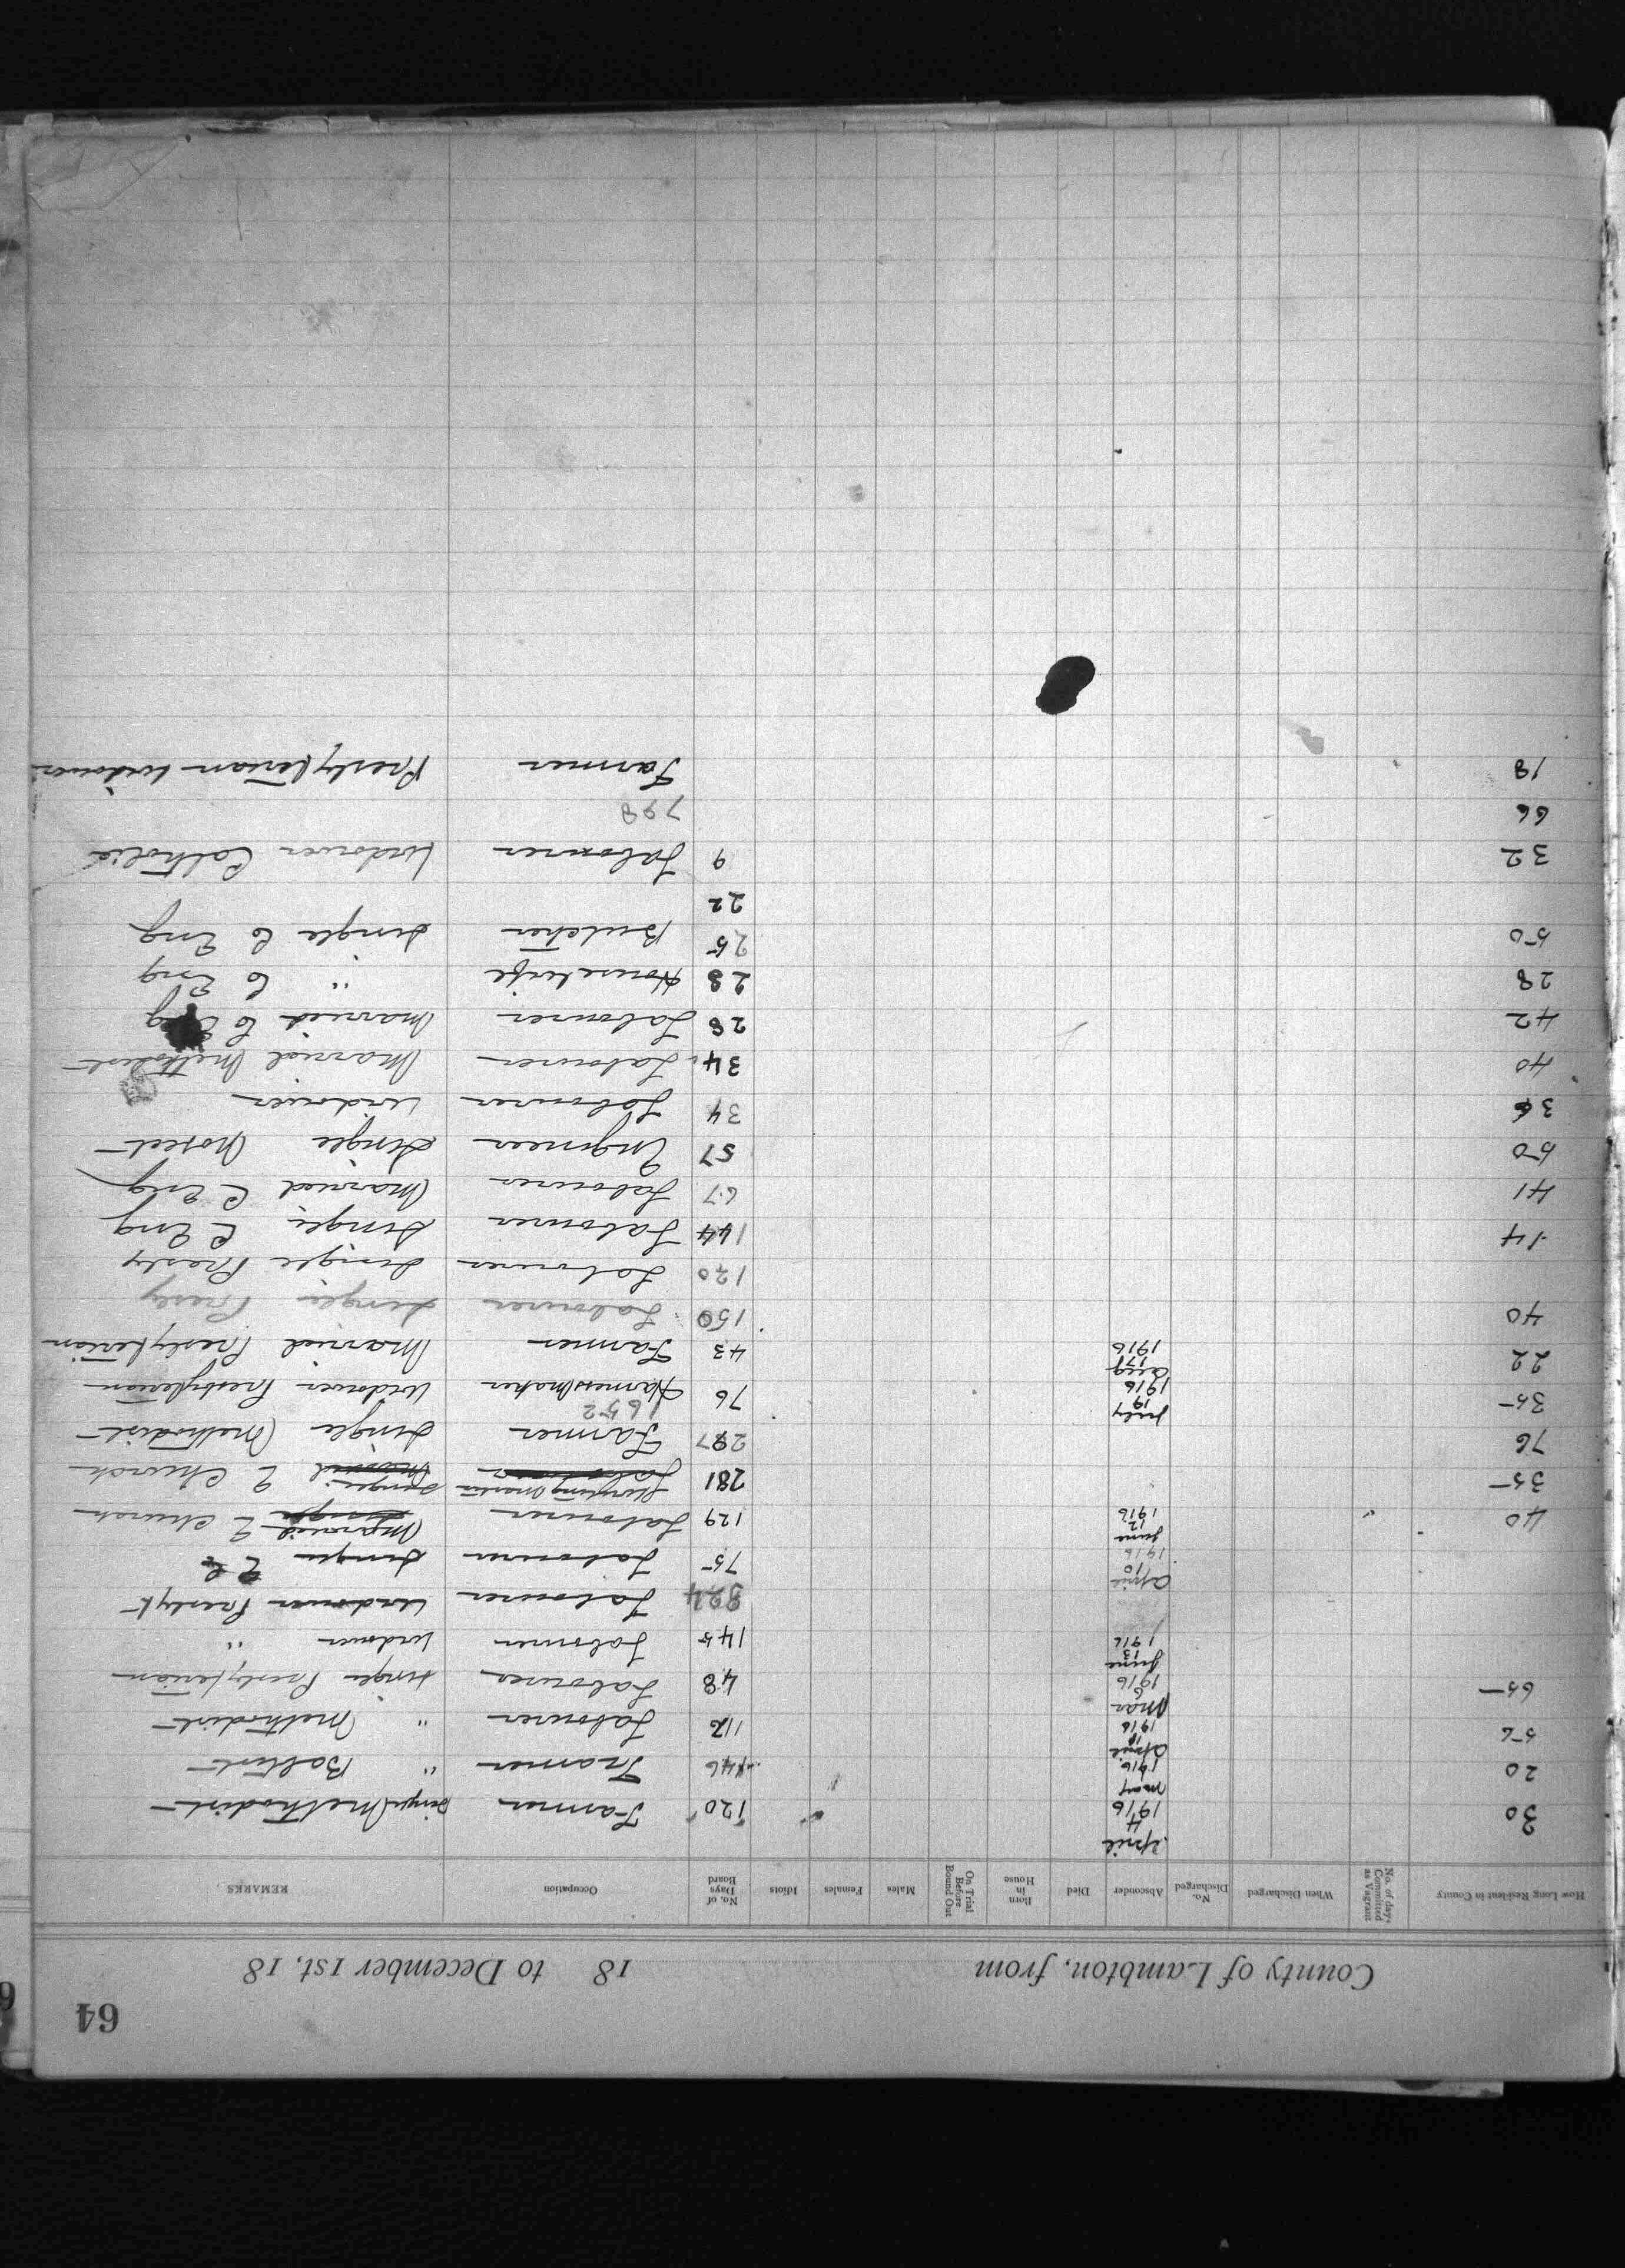 64
County of Lambton, from 18 to December 1st, 18
How Long Resident in County No. of days Committed as Vagrant When Discharged No. Discharged Absconder Died Born in House On Trial Before Bound Out Males Females Idiots No. of Days Board Occupation REMARKS
30 April 4 1916 120 Farmer Single Methodist
20 May 1916 146 Farmer " Baptist
56 April 1916 Labourer " Methodist
65 Mar 6 1916 48 Labourer Single Presbyterian
June 13 1916 145 Labourer Widower "
324 Labourer Widower Presbyt
April 10 1916 75 Labourer Single
40 June 12 1916 129 Labourer Married E Church
35 281 Single E Church
76 Farmer Single Methodist
1652
35 July 19 1916 76 Harnessmaker Widower Presbyterian
22 Aug 17 1916 43 Farmer Married Presbyterian
40 150 Labourer Single Presby
120 Labourer Single Presby
14 144 Labourer Single C Eng
41 67 Labourer Married C Eng
50 57 Engineer Single
36 34 Labourer Widower
40 34 Labourer Married Methodist
42 28 Labourer Married C Eng
28 28 Housewife " C Eng
50 25 Butcher Single C Eng
22
32 9 Labourer Widower Catholic
66 798
18 Farmer Presbyterian Widower